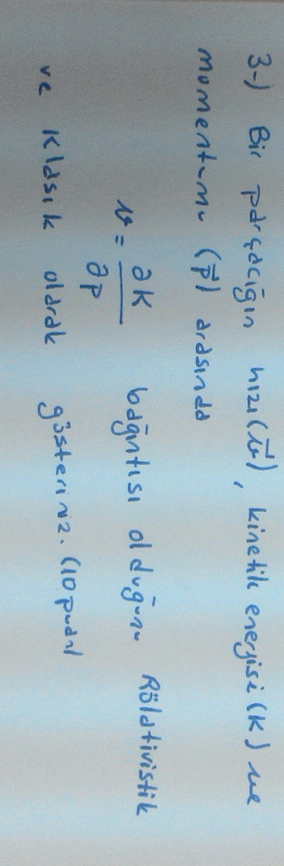 3-) Bir parçacığın hızı (v⃗), kinetik enerjisi (K) ve
momentumu (p⃗) arasında
v = ∂K/∂p bağıntısı olduğunu Rölativistik
ve Klasik olarak gösteriniz. (10 puan)